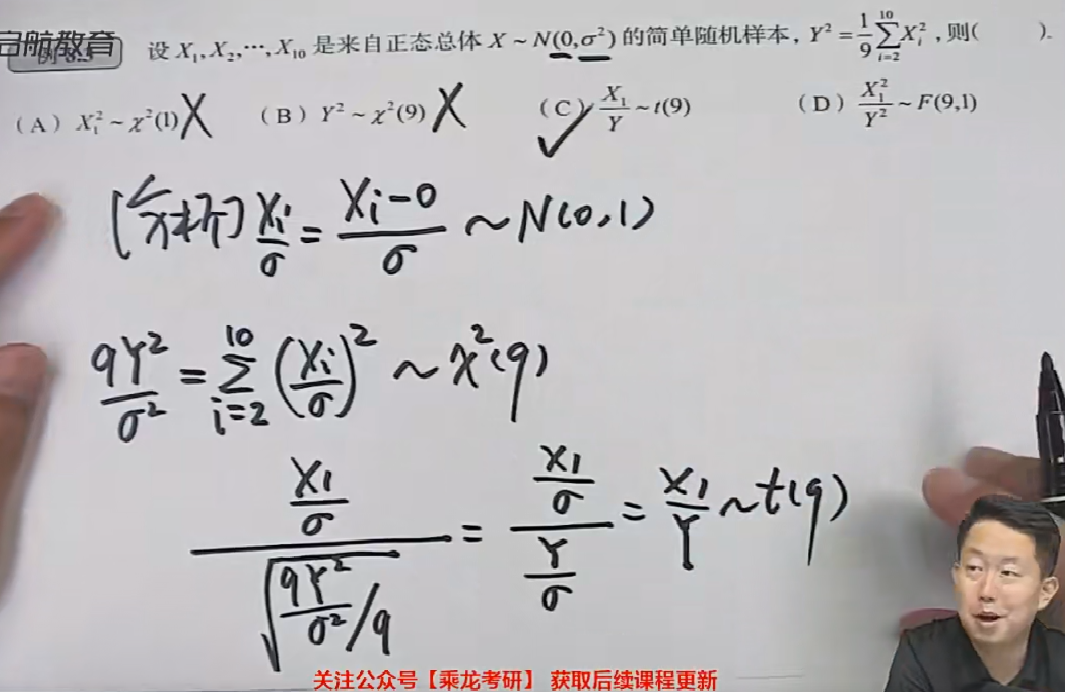 启航教育
例8.5 设 X₁,X₂,⋯,X₁₀ 是来自正态总体 X ~ N(0,σ²) 的简单随机样本, Y² = 1/9 ∑_{i=2}^{10} X_i² ,则( ).
(A) X₁² ~ χ²(1) X (B) Y² ~ χ²(9) X (C) X₁/Y ~ t(9) ✓ (D) X₁²/Y² ~ F(9,1)
[分析] X_i/σ = (X_i−0)/σ ~ N(0,1)
9Y²/σ² = ∑_{i=2}^{10} (X_i/σ)² ~ χ²(9)
(X₁/σ)/√(9Y²/σ² /9) = (X₁/σ)/(Y/σ) = X₁/Y ~ t(9)
关注公众号【乘龙考研】 获取后续课程更新